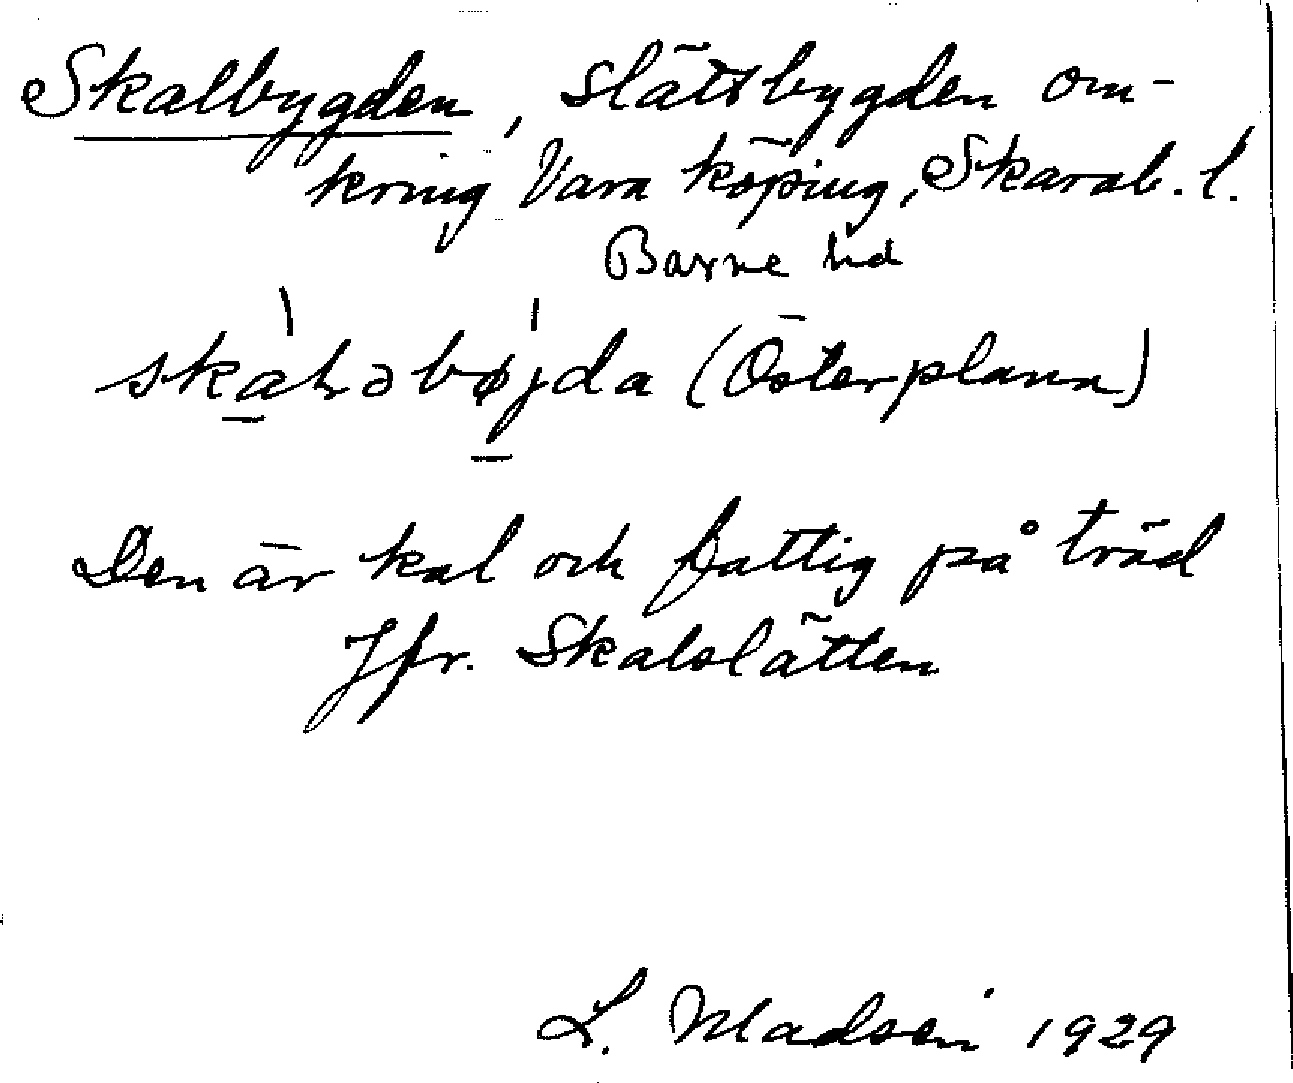 Skalbygden, slättbygden om-
kring Vara köping, Skarab. l.
Barne hd
(Österplana)
Den är kal och fattig på träd
Jfr. Skalslätten
L. Madsén 1929